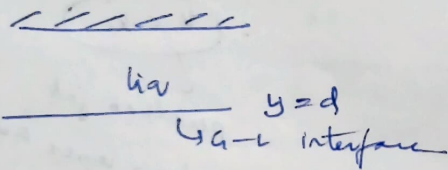 liq
y = d
↳ G-L interface